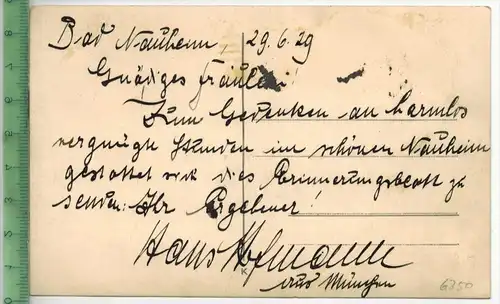 Bad Nauheim, 29.6.29
Gnädiges Fräulein!
Zum Gedenken an harmlos
vergnügte Stunden im schönen Nauheim
gestattet sich dies Erinnerungsblatt zu
senden: Ihr Ergebener!
Hans Hofmann
aus München
K
6350